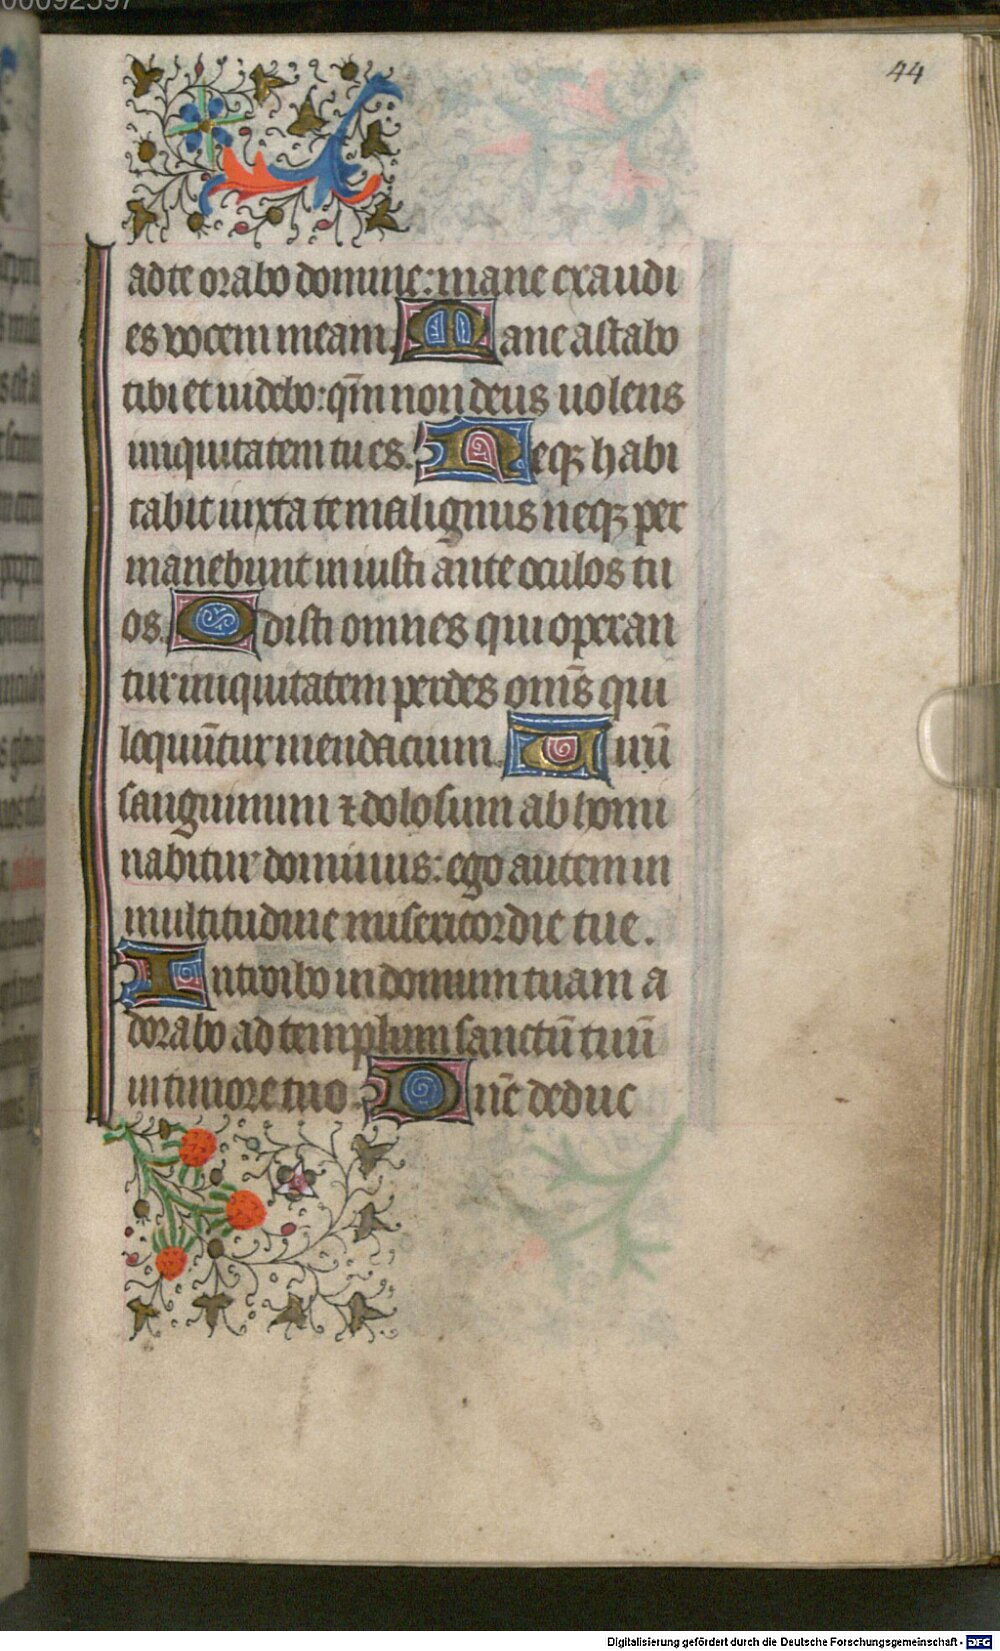 00092597
44
ad te orabo domine: mane exaudi
es vocem meam. Mane astabo
tibi et uidebo: qm̄ non deus uolens
iniquitatem tu es. Neqꝫ habi
tabit iuxta te malignus neqꝫ per
manebunt iniusti ante oculos tu
os. Odisti omnes qui operan
tur iniquitatem perdes om̄s qui
loquūtur mendacium. Uirū
sanguinum ⁊ dolosum abhomi
nabitur dominus: ego autem in
multitudine misericordie tue.
Introibo in domum tuam a
dorabo ad templum sanctū tuū
in timore tuo. Dn̄e deduc
Digitalisierung gefördert durch die Deutsche Forschungsgemeinschaft - DFG